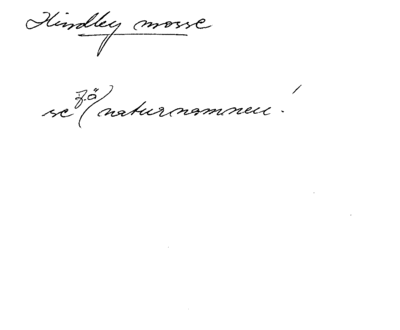 Hindley mosse
se f.ö. naturnamnen!